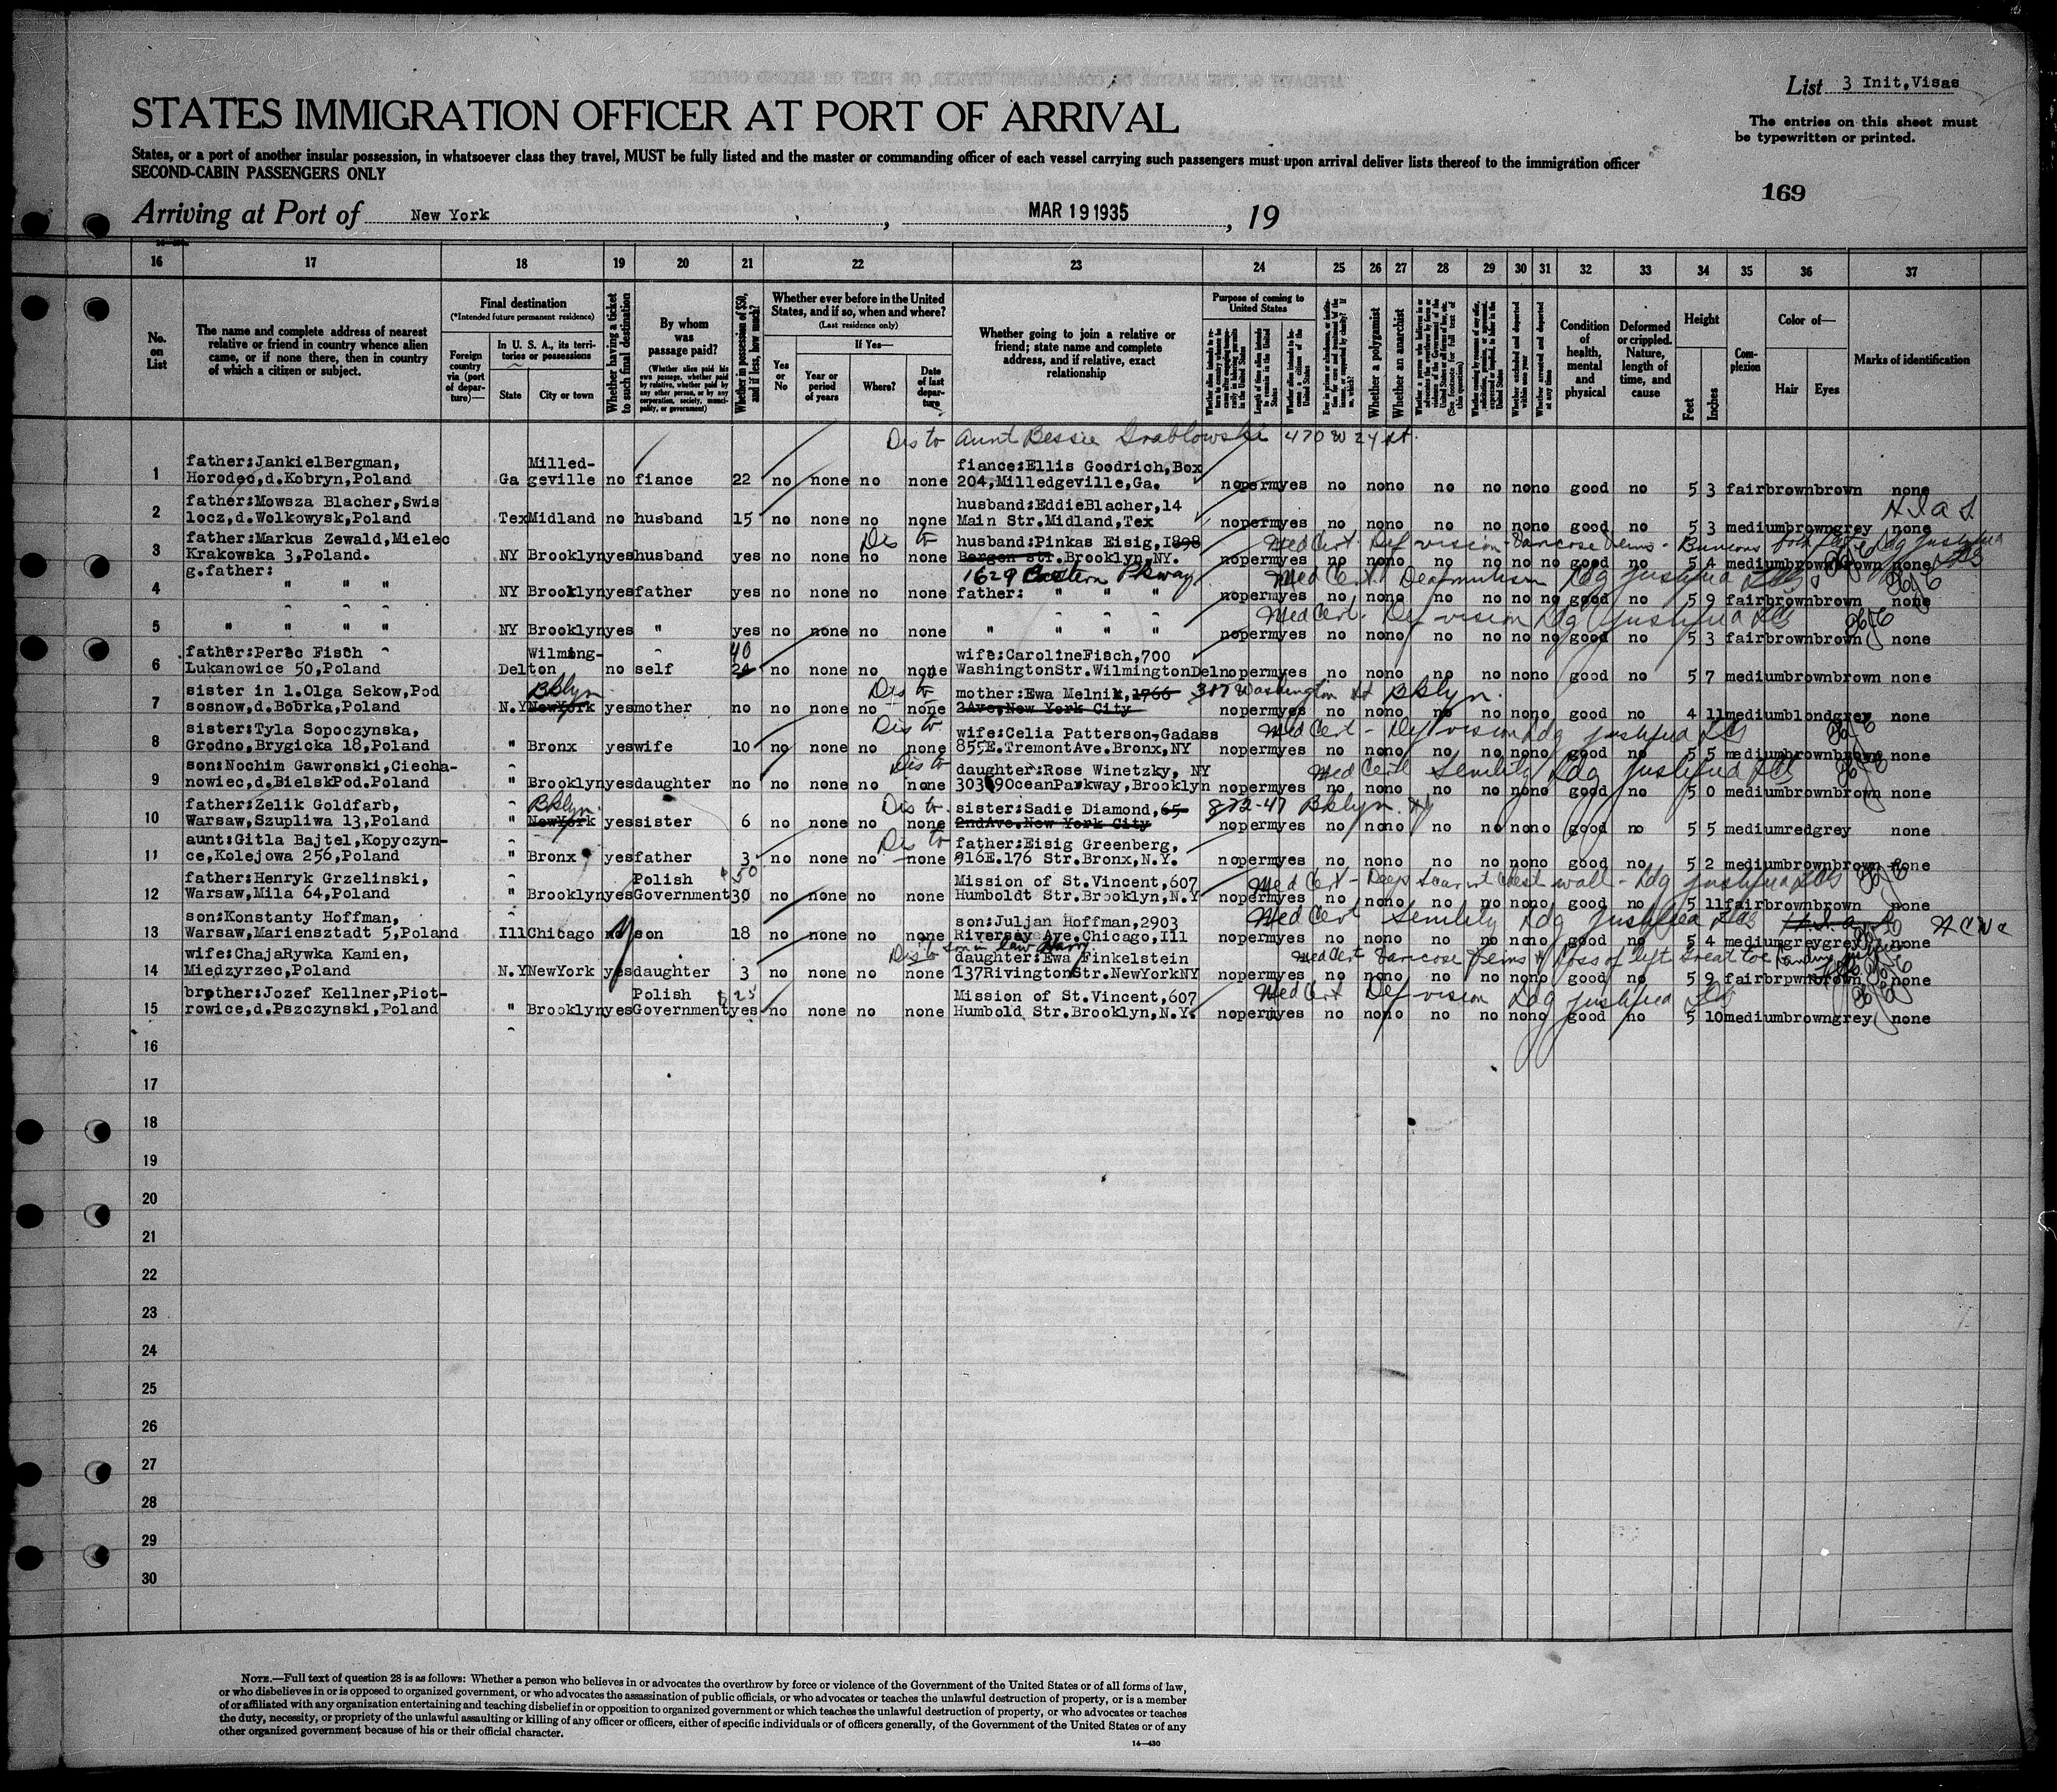 List 3 Init,Visas
STATES IMMIGRATION OFFICER AT PORT OF ARRIVAL
The entries on this sheet must
be typewritten or printed.
States, or a port of another insular possession, in whatsoever class they travel, MUST be fully listed and the master or commanding officer of each vessel carrying such passengers must upon arrival deliver lists thereof to the immigration officer
SECOND-CABIN PASSENGERS ONLY
169
Arriving at Port of New York, MAR 19 1935, 19
16 17 18 19 20 21 22 23 24 25 26 27 28 29 30 31 32 33 34 35 36 37
No. on List
The name and complete address of nearest relative or friend in country whence alien came, or if none there, then in country of which a citizen or subject.
Final destination
(*Intended future permanent residence)
Foreign country via (port of departure)—
In U. S. A., its territories or possessions
State
City or town
Whether having a ticket to such final destination
By whom was passage paid?
(Whether alien paid his own passage, whether paid by relative, whether paid by any other person, or by any corporation, society, municipality, or government)
Whether in possession of $50, and if less, how much?
Whether ever before in the United States, and if so, when and where?
(Last residence only)
Yes or No
If Yes—
Year or period of years
Where?
Date of last departure
Whether going to join a relative or friend; state name and complete address, and if relative, exact relationship
Purpose of coming to United States
Length of time alien intends to remain in the United States
Whether alien intends to become a citizen of the United States
Whether a polygamist
Whether an anarchist
Whether excluded and deported within one year
Whether arrested and deported at any time
Condition of health, mental and physical
Deformed or crippled. Nature, length of time, and cause
Height
Feet
Inches
Complexion
Color of—
Hair
Eyes
Marks of identification
Dis to Aunt Bessie Grablowski 470 W 24 St.
father:JankielBergman, Milled- fiance:Ellis Goodrich,Box
1 Horodec,d.Kobryn,Poland Ga geville no fiance 22 no none no none 204,Milledgeville,Ga. nopermyes no nono no no nono good no 5 3 fairbrownbrown none
father:Mowsza Blacher,Swis husband:EddieBlacher,14 HIAS
2 locz,d.Wolkowysk,Poland TexMidland no husband 15 no none no none Main Str.Midland,Tex nopermyes no nono no no nono good no 5 3 mediumbrowngrey none
father:Markus Zewald,Mielec Dis to husband:Pinkas Eisig,I898 Med Cert. Def vision - Varicose Veins - Bunions both feet Ldg justified
3 Krakowska 3,Poland. NY Brooklynyeshusband yes no none no none Bergen str.Brooklyn,NY. nopermyes no nono no no nono good no 5 4 mediumbrownbrown none
g.father: 1629 Eastern Pkway Med Cert. Deafmutism Ldg justified
4 " " " NY Brooklynyesfather yes no none no none father: " " " nopermyes no nono no no no no good no 5 9 fairbrownbrown none
Med Cert. Def vision Ldg justified
5 " " " " NY Brooklynyes " yes no none no none " " " " nopermyes no nono no no no no good no 5 3 fairbrownbrown none
father:Perec Fisch Wilming- 40 wife:CarolineFisch,700
6 Lukanowice 50,Poland Delton no self no none no none WashingtonStr.WilmingtonDelnopermyes no nono no no nono good no 5 7 mediumbrownbrown none
sister in l.Olga Sekow,Pod Bklyn Dis to mother:Ewa Melnik,1766 317 Washington St Bklyn.
7 sosnow,d.Bobrka,Poland N.YNewYork yesmother no no none no none 2Ave,New York City nopermyes no nono no no nono good no 4 11mediumblondgrey none
sister:Tyla Sopoczynska, Dis to wife:Celia Patterson-Gadass Med Cert - Def vision Ldg justified
8 Grodno,Brygicka 18,Poland " Bronx yeswife 10 no none no none 855E.TremontAve.Bronx,NY nopermyes no nono no no nono good no 5 5 mediumbrownbrown none
son:Nochim Gawronski,Ciecha- Dis to daughter:Rose Winetzky, NY Med Cert Senility Ldg justified
9 nowiec,d.BielskPod.Poland " Brooklynyesdaughter no no none no none 3039OceanParkway,Brooklyn nopermyes no nono no no nono good no 5 0 mediumbrownbrown none
father:Zelik Goldfarb, Bklyn Dis to sister:Sadie Diamond,65 872-47 Bklyn
10 Warsaw,Szupliwa 13,Poland " NewYork yessister 6 no none no none 2ndAve.New York City nopermyes no nono no no nono good no 5 5 mediumredgrey none
aunt:Gitla Bajtel,Kopyczyn- Dis to father:Eisig Greenberg,
11 ce,Kolejowa 256,Poland " Bronx yesfather 3 no none no none 916E.176 Str.Bronx,N.Y. nopermyes no nono no no nono good no 5 2 mediumbrownbrown none
father:Henryk Grzelinski, Polish 50 Mission of St.Vincent,607 Med Cert - Deep scar chest wall - Ldg justified
12 Warsaw,Mila 64,Poland " BrooklynyesGovernment30 no none no none Humboldt Str.Brooklyn,N.Y nopermyes no nono no no nono good no 5 11fairbrownbrown none
son:Konstanty Hoffman, son:Juljan Hoffman,2903 Med Cert Senility Ldg justified
13 Warsaw,Mariensztadt 5,Poland IllChicago son 18 no none no none Riversey Ave.Chicago,Ill nopermyes no nono no no nono good no 5 4 mediumgreygrey none
wife:ChajaRywka Kamien, Dis to son in law Harry daughter:Ewa Finkelstein Med Cert Varicose Veins & Loss of left great toe
14 Miedzyrzec,Poland N.YNewYork yesdaughter 3 no none no none 137RivingtonStr.NewYorkNY nopermyes no nono no no nono good no 5 9 fairbrpwnbrown none
brother:Jozef Kellner,Piot- Polish 25 Mission of St.Vincent,607 Med Cert Def vision Ldg justified
15 rowice,d.Pszczynski,Poland " BrooklynyesGovernmentyes no none no none Humbold Str.Brooklyn,N.Y. nopermyes no nono no no nono good no 5 10mediumbrowngrey none
16
17
18
19
20
21
22
23
24
25
26
27
28
29
30
NOTE.—Full text of question 28 is as follows: Whether a person who believes in or advocates the overthrow by force or violence of the Government of the United States or of all forms of law,
or who disbelieves in or is opposed to organized government, or who advocates the assassination of public officials, or who advocates or teaches the unlawful destruction of property, or is a member
of or affiliated with any organization entertaining and teaching disbelief in or opposition to organized government or which teaches the unlawful destruction of property, or who advocates or teaches
the duty, necessity, or propriety of the unlawful assaulting or killing of any officer or officers, either of specific individuals or of officers generally, of the Government of the United States or of any
other organized government because of his or their official character.
14—430